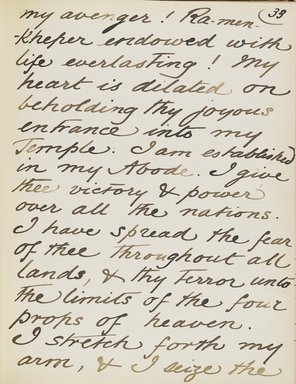 39
my avenger! Ra-men-
-kheper endowed with
life everlasting! My
heart is dilated on
beholding thy joyous
entrance into my
Temple. I am established
in my Abode. I give
thee victory & power
over all the nations.
I have spread the fear
of thee throughout all
lands, & thy terror unto
the limits of the four
props of heaven.
I stretch forth my
arm, & I seize the